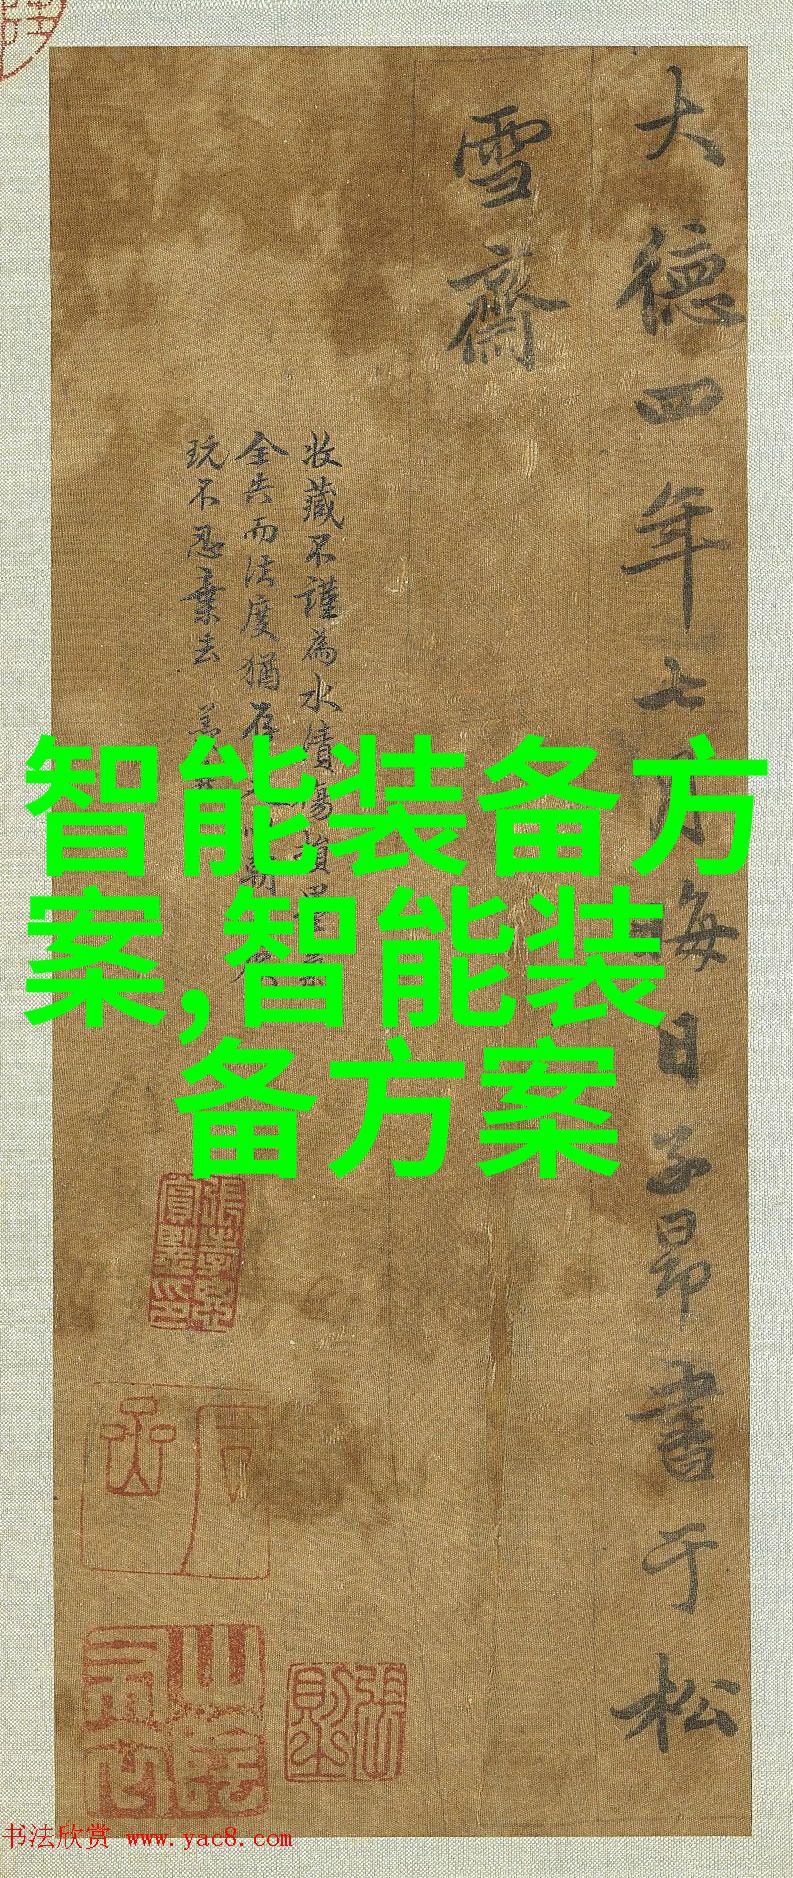 大德四年七月晦日子昂書于松
雪齋
收藏不謹為水漬傷損
全告而法度猶存
玩不忍棄去
智能装备方
案,智能装
备方案
張孝思
賞鑒印
張
則之
书法欣赏 www.yac8.com